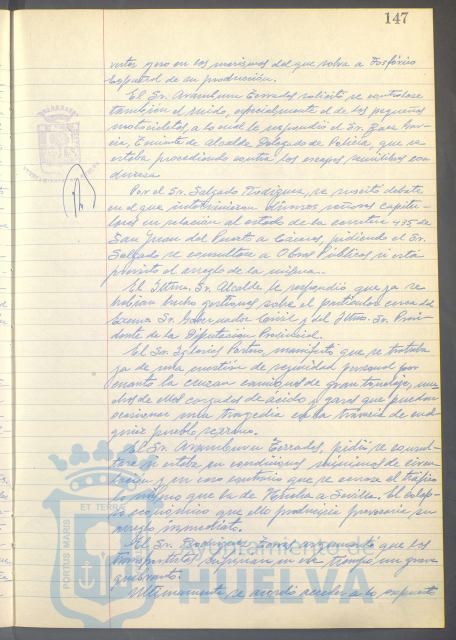 147
El Sr. Aramburu Terrades solicitó se controlase
también el ruido, especialmente el de las pequeñas
motocicletas, a lo cual le respondió el Sr. Baez Gar-
cía, Teniente de Alcalde Delegado de Policía, que se
estaba procediendo contra los escapes
Por el Sr. Salgado Rodríguez, se suscitó debate
en el que intervinieron diversos señores capitu-
lares en relación al estado de la carretera 435 de
San Juan del Puerto a Cáceres, pidiendo el Sr.
Salgado se consultase a Obras Públicas si está
previsto el arreglo de la misma.
El Iltmo. Sr. Alcalde, le respondió que ya se
habían hecho gestiones sobre el particular cerca del
Excmo. Sr. Gobernador Civil y del Iltmo. Sr. Presi-
dente de la Diputación Provincial.
El Sr. Iglesias manifestó que se trataba
ya de una cuestión de seguridad personal por
cuanto la cruzan camiones de gran tonelaje, mu-
chos de ellos cargados de ácido y gases que pueden
ocasionar una tragedia en la travesía de cual-
quier pueblo serrano.
El Sr. Aramburu Terrades, pidió se consul-
tase si estaba en condiciones de circu-
lación y en caso contrario que se cerrase el tráfico
lo mismo que la de Huelva a Sevilla. El
que ello produciría provocaría su
arreglo inmediato.
El Sr. Rodríguez que los
transportistas en ese tiempo un grave
quebranto.
Ultimamente se acordó acceder a lo expuesto
PORTUS MARIS
ET TERRAE
Ayuntamiento de
HUELVA